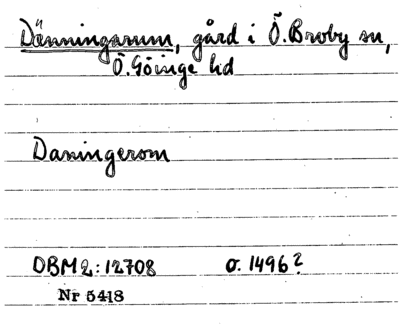 Dänningarum, gård i Ö. Broby sn,
Ö. Göinge hd
Daningerom
DBM 2:12708 o. 1496?
Nr 5418